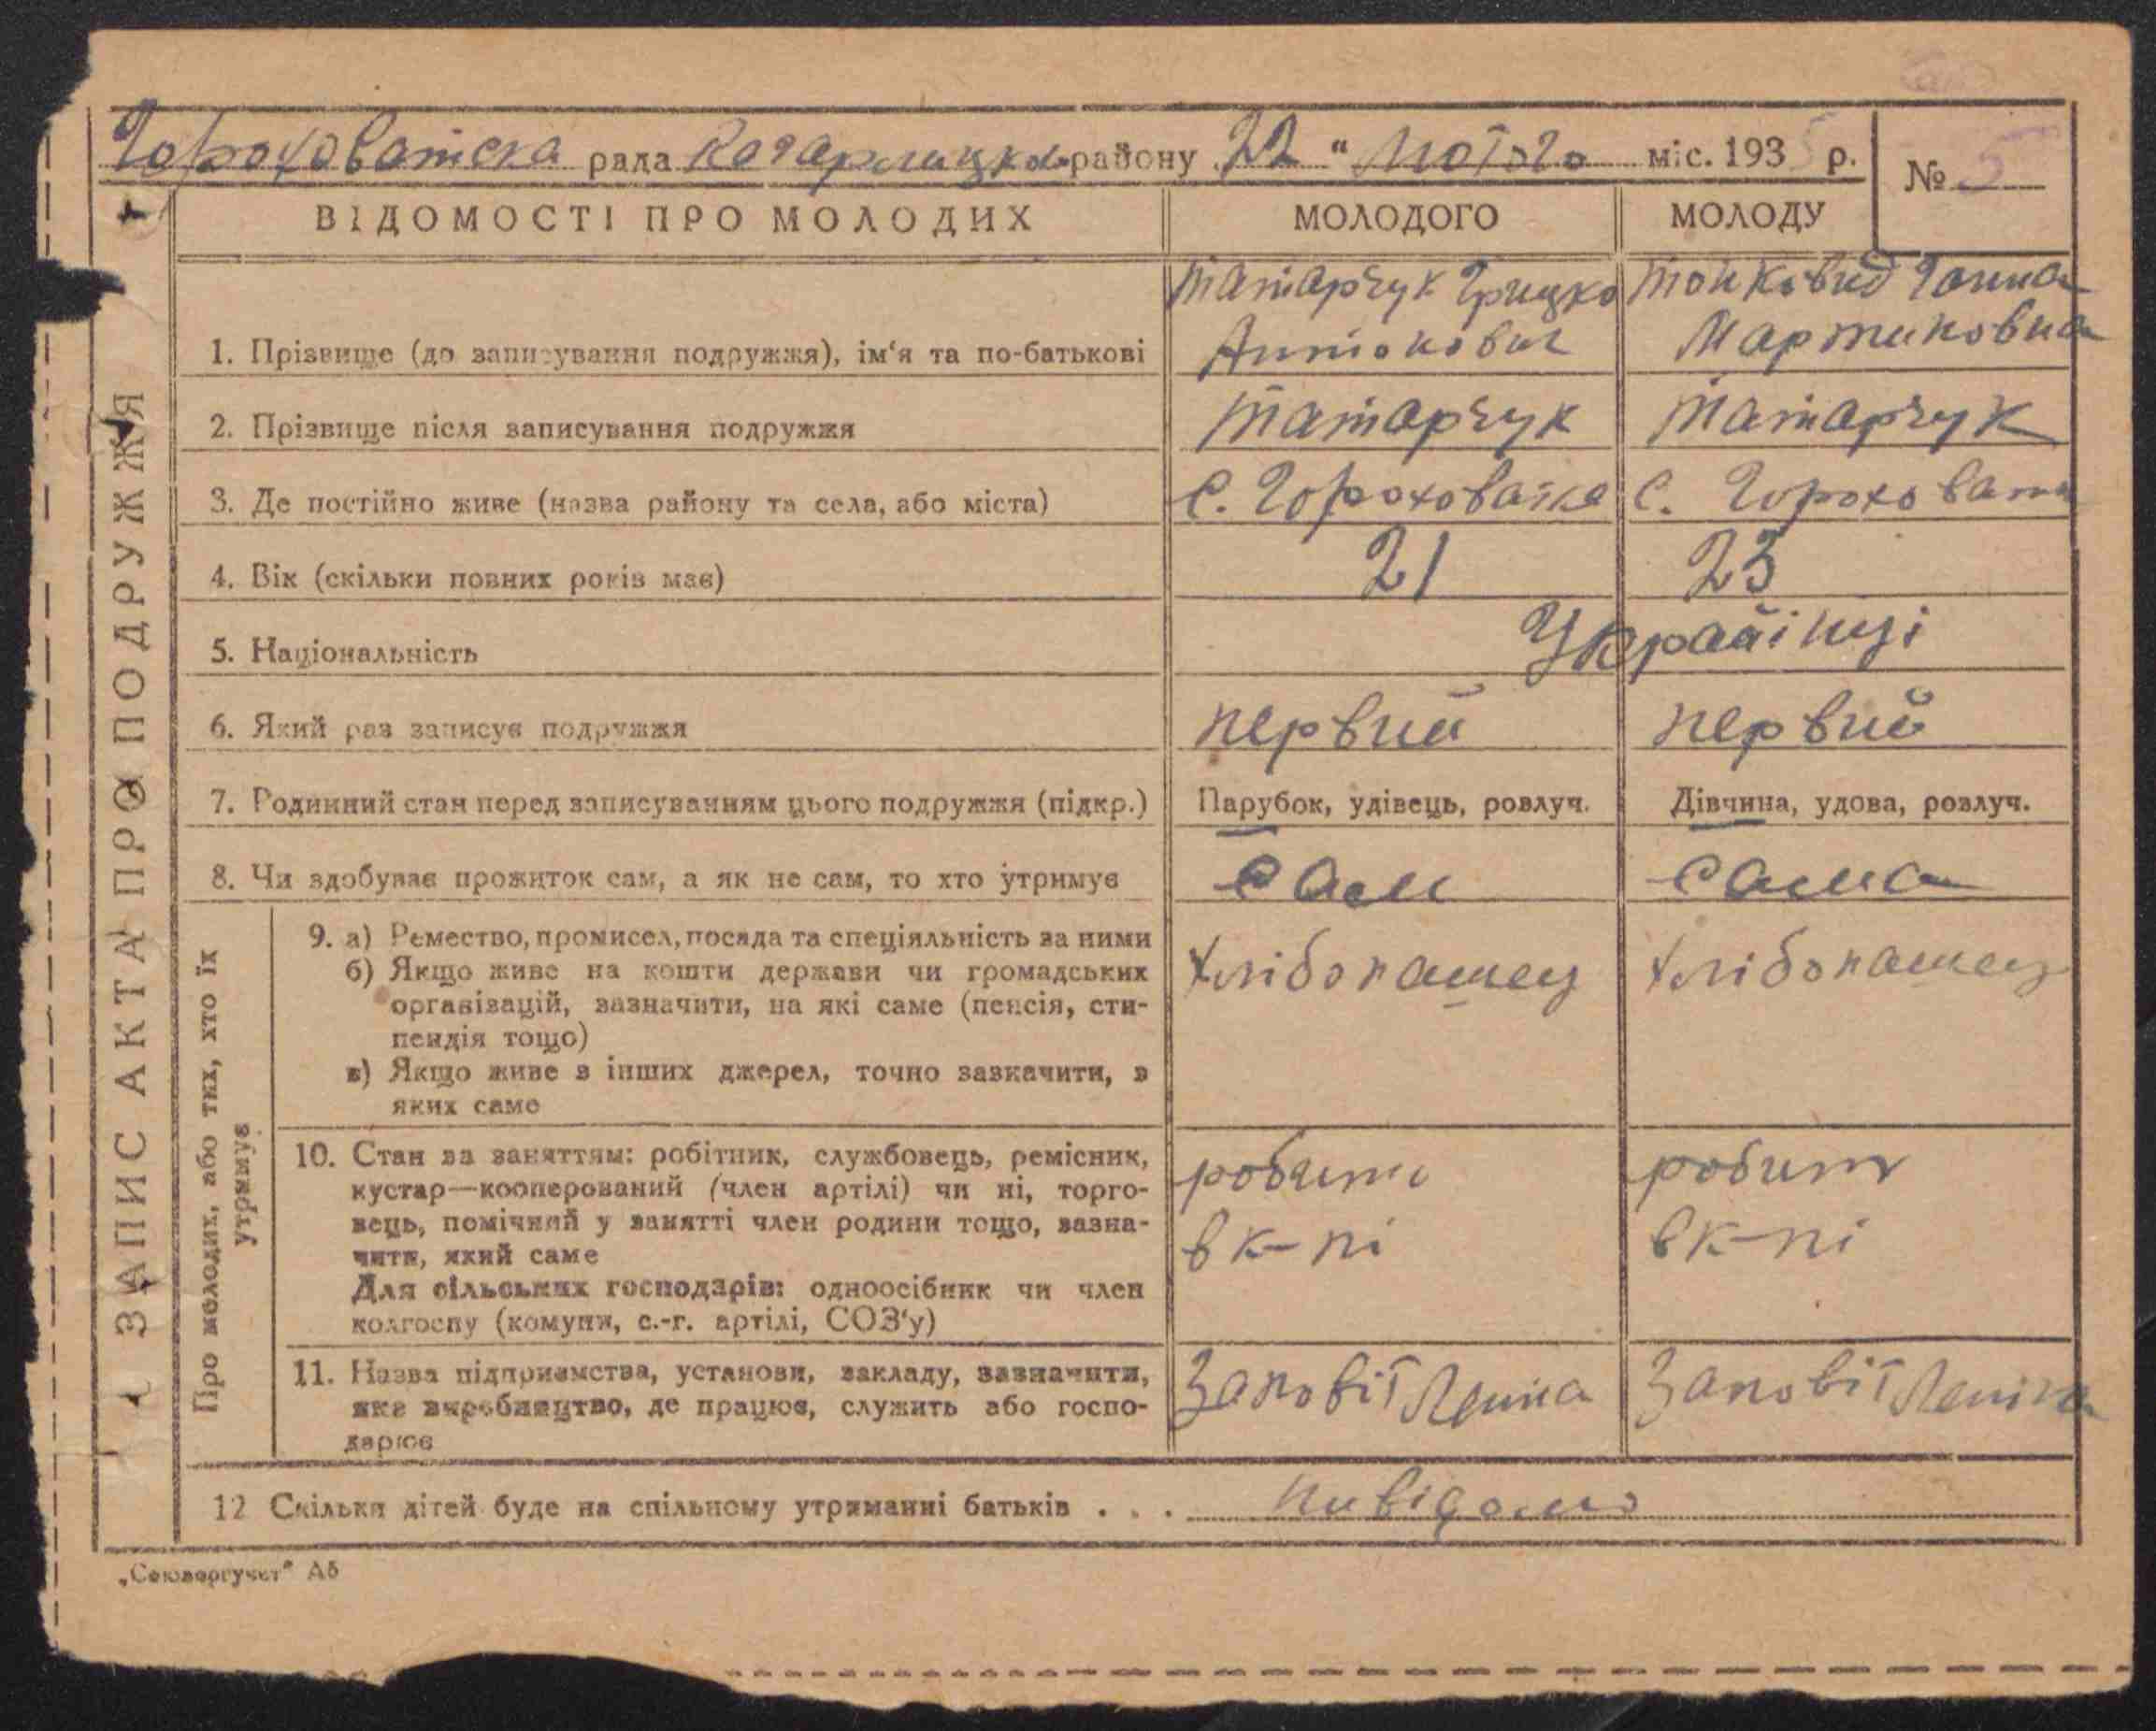 Гороховатска рада Кагарлицького району 22 " Лютого міс. 1935 р.
№ 5
ВІДОМОСТІ ПРО МОЛОДИХ МОЛОДОГО МОЛОДУ
ЗАПИС АКТА ПРО ПОДРУЖЖЯ
Татарчук Грицко Тонковид Ганна
1. Прізвище (до записування подружжя), ім'я та по-батькові Антонович Мартиновна
2. Прізвище після записування подружжя Татарчук Татарчук
3. Де постійно живе (назва району та села, або міста) С. Гороховатка С. Горохова
4. Вік (скільки повних років має) 21 23
5. Національність Українці
6. Який раз записує подружжя первий первий
7. Родинний стан перед записуванням цього подружжя (підкр.) Парубок, удівець, розлуч. Дівчина, удова, розлуч.
8. Чи здобуває прожиток сам, а як не сам, то хто утримує сам сама
Про молодих, або тих, хто їх
утримує
9. а) Ремество, промисел, посада та спеціяльність за ними хлібопашец хлібопашец
б) Якщо живе на кошти держави чи громадських
організацій, зазначити, на які саме (пенсія, сти-
пендія тощо)
в) Якщо живе з інших джерел, точно зазначити, з
яких саме
10. Стан за заняттям: робітник, службовець, ремісник,
кустар—кооперований (член артілі) чи ні, торго- робит робит
вець, помічний у занятті член родини тощо, зазна-
чити, який саме в к-пі в к-пі
Для сільських господарів: одноосібник чи член
колгоспу (комуни, с.-г. артілі, СОЗ'у)
11. Назва підприємства, установи, закладу, зазначити,
яке виробництво, де працює, служить або госпо- Заповіт Леніна Заповіт Леніна
дарює
12 Скільки дітей буде на спільному утриманні батьків . . . нивідомо
„Союзоргучет" А5